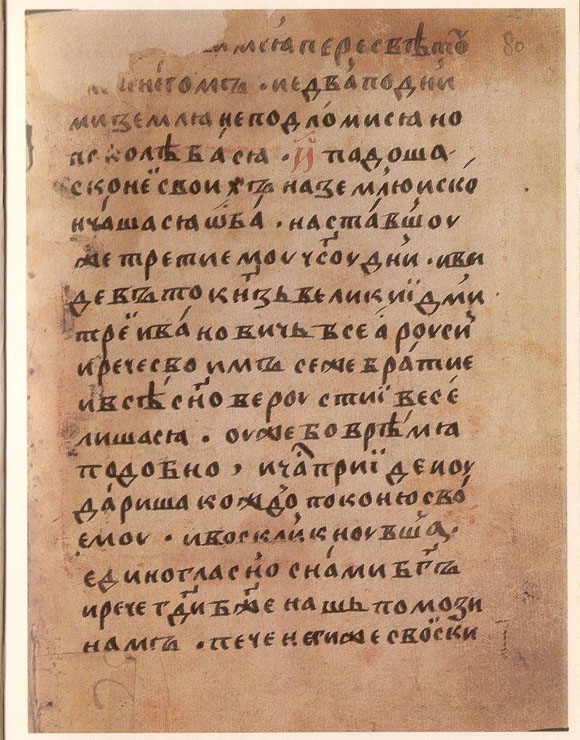 имꙗ пересвѣтꙋ 80
гомъ · и едва под ни
ми землꙗ не подломисꙗ но
колѣбасꙗ · и падоша
с конё своихъ на землю и ско
нчашасꙗ ѡба · наставшоу
же третиемоу чс҃оу дни · иви
девъ то кнз҃ь великиї дми
треї ивановичь всеа роуси
и рече сво имъ се же братие
и всѣ сн҃ове роустиї весе
лишасꙗ · оуже бо врѣмꙗ
подобно , и часъ прииде и оу
дариша кождо по коню сво
емоу · и воскликноувша
единогласно с нами бг҃ъ
и рече гд҃и бж҃е нашь помози
намъ · печенеги же своски